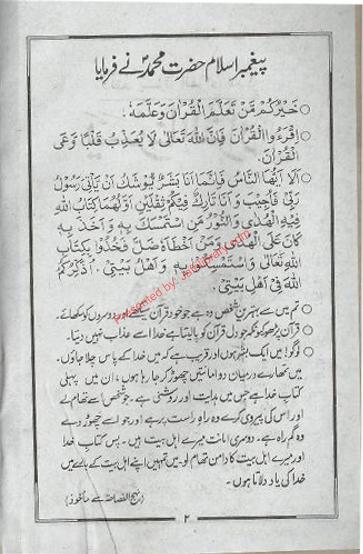 پیغمبر اسلام حضرت محمدؐ نے فرمایا
خَيْرُكُمْ مَّنْ تَعَلَّمَ الْقُرْاٰنَ وَعَلَّمَهٗ.
اِقْرَءُوا الْقُرْاٰنَ فَاِنَّ اللهَ تَعَالٰى لَا يُعَذِّبُ قَلْبًا وَعَى
الْقُرْاٰنَ.
اَلَا اَيُّهَا النَّاسُ فَاِنَّمَا اَنَا بَشَرٌ يُوْشَكُ اَنْ يَاْتِىَ رَسُوْلُ
رَبِّىْ فَاُجِيْبُ وَاَنَا تَارِكٌ فِيْكُمْ ثَقَلَيْنِ اَوَّلُهُمَا كِتَابُ اللهِ
فِيْهِ الْهُدٰى وَالنُّوْرُ مَنِ اسْتَمْسَكَ بِهٖ وَاَخَذَ بِهٖ
كَانَ عَلَى الْهُدٰى وَمَنْ اَخْطَاَهُ ضَلَّ فَخُذُوْا بِكِتَابِ
اللهِ تَعَالٰى وَاسْتَمْسِكُوْا بِهٖ وَاَهْلُ بَيْتِىْ، اُذَكِّرُكُمُ
اللهَ فِىْ اَهْلِ بَيْتِىْ.
تم میں سے بہترین شخص وہ ہے جو خود قرآن سیکھے اور دوسروں کو سکھائے۔
قرآن پڑھو کیونکہ جو دل قرآن کو پا لیتا ہے خدا اسے عذاب نہیں دیتا۔
لوگو! میں ایک بشر ہوں اور قریب ہے کہ میں خدا کے پاس چلا جاؤں۔
میں تمھارے درمیان دو امانتیں چھوڑ کر جا رہا ہوں، ان میں پہلی
کتاب خدا ہے جس میں ہدایت اور روشنی ہے۔ جو شخص اسے تھام لے
اور اس کی پیروی کرے وہ راہ راست پر ہے اور جو اسے چھوڑ دے
وہ گم راہ ہے۔ دوسری امانت میرے اہل بیت ہیں۔ پس کتاب خدا
اور میرے اہل بیت کا دامن تھام لو۔ میں تمہیں اپنے اہل بیت کے بارے میں
خدا کی یاد دلاتا ہوں۔
(نہج الفصاحۃ سے ماخوذ)
۲
Presented by: